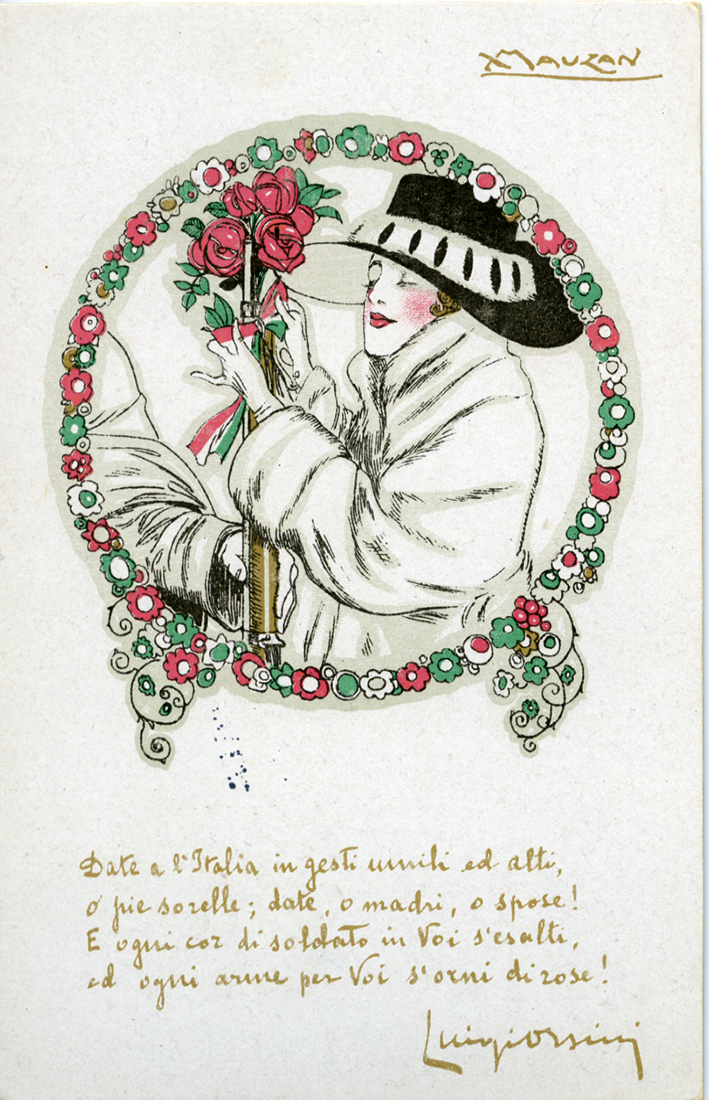 Mauzan
Date a l'Italia in gesti umili ed alti,
o pie sorelle; date, o madri, o spose!
E ogni cor di soldato in Voi s'esalti,
ed ogni arme per Voi s'orni di rose!
Luigi Orsini